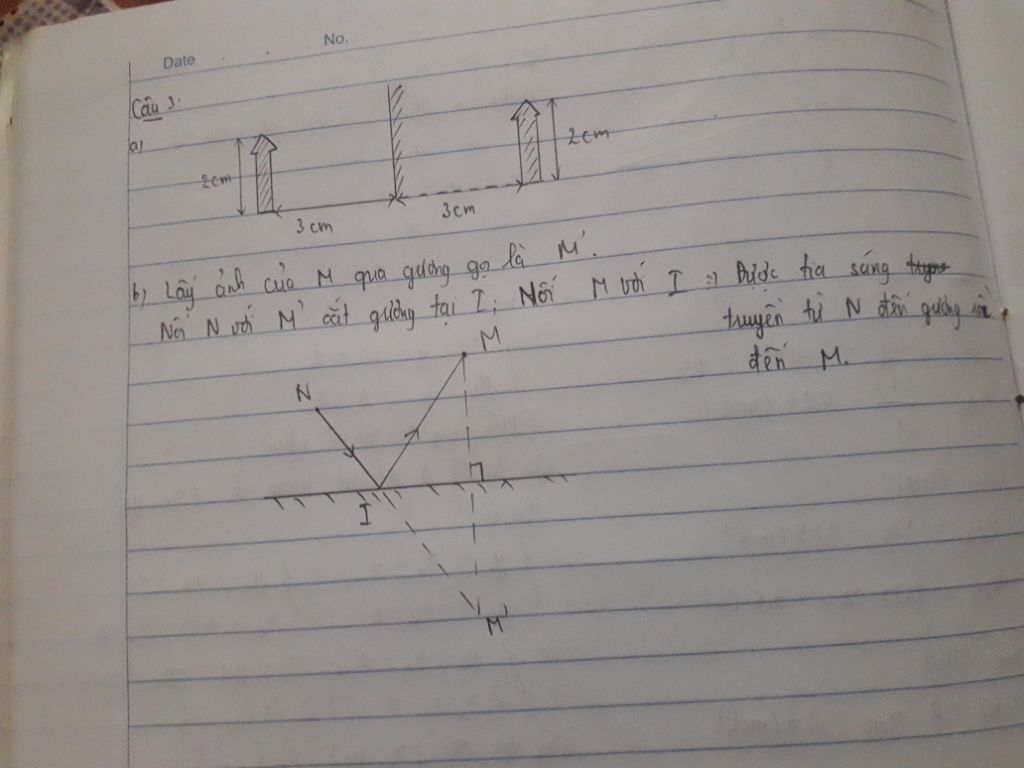 Date No.
Câu 3:
a)
2cm
2cm
3cm
3cm
b) Lấy ảnh của M qua gương gọ là M'.
Nối N với M' cắt gương tại I; Nối M với I => Được tia sáng
truyền từ N đến gương rồi
đến M.
M
N
I
M'